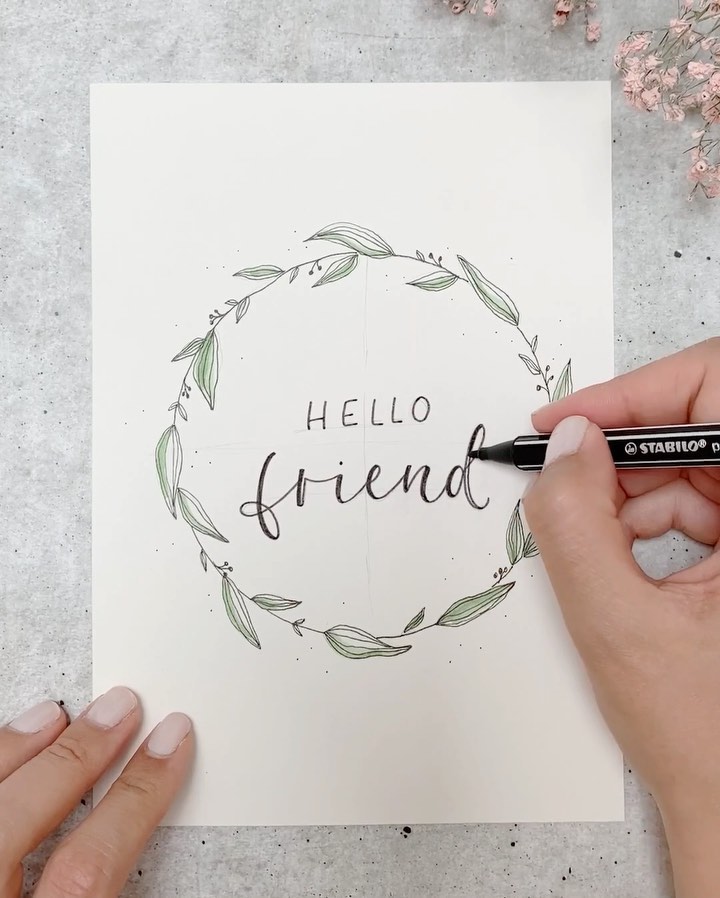 HELLO
friend
STABILO®